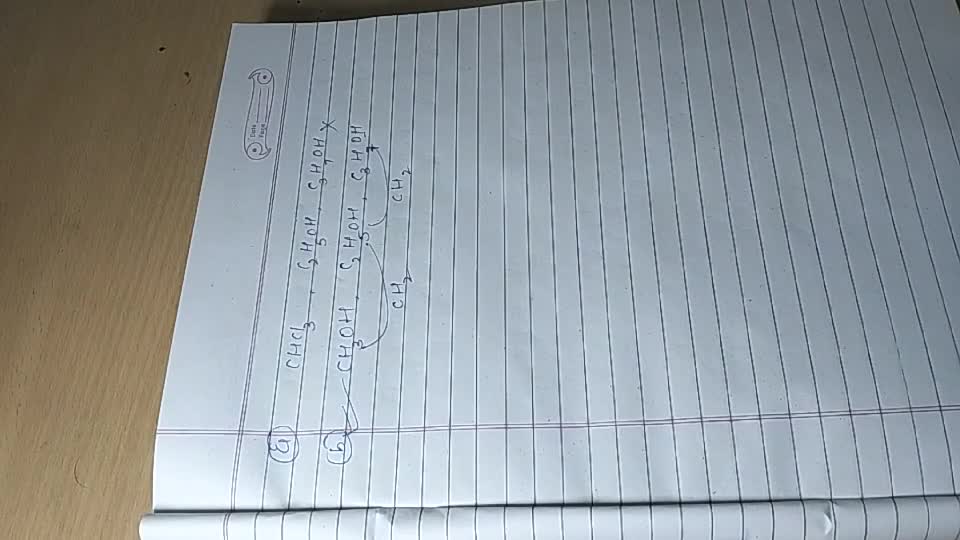 Date
Page
(a) CHCl3, C2H5OH, C3H7OH X
(b) CH3OH, C2H5OH, C3H7OH
CH2 CH2